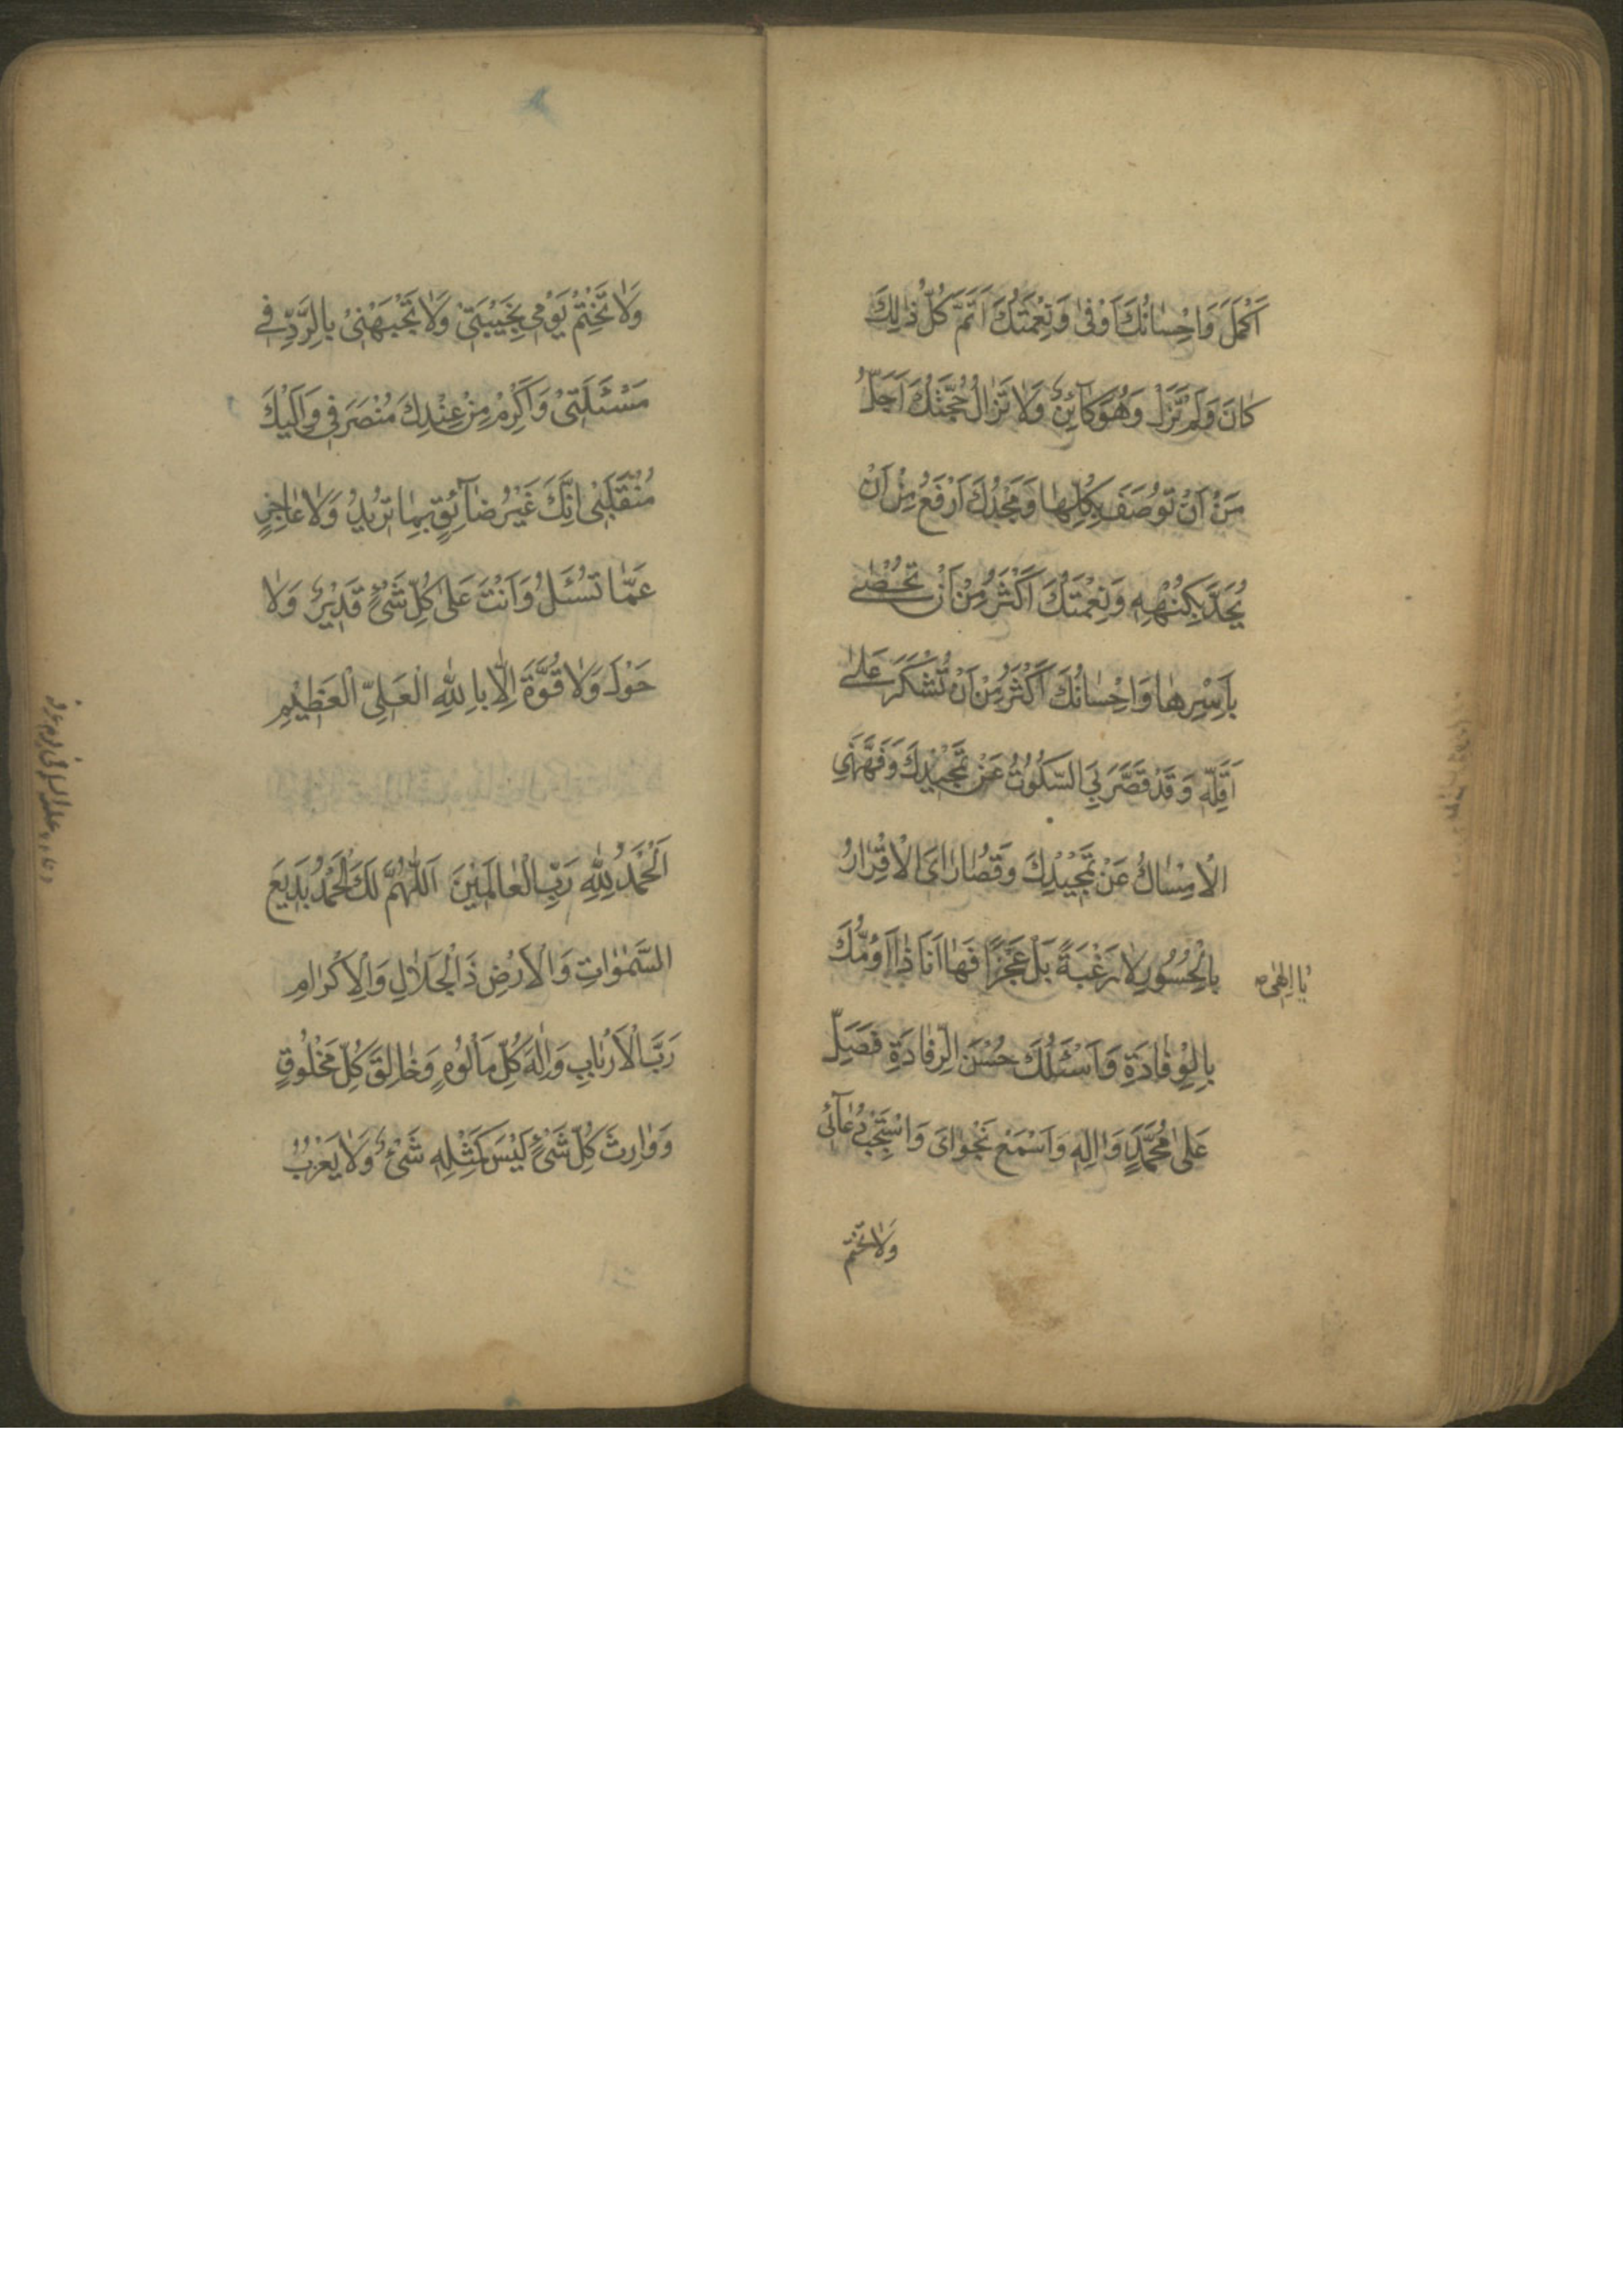 اَكْمَلَ وَاِحْسٰانُكَ اَوْفٰى وَنِعْمَتُكَ اَتَمَّ كُلُّ ذٰلِكَ
كٰانَ وَلَمْ تَزَلْ وَهُوَ كٰآئِنٌ وَلٰا تَزٰالُ حُجَّتُكَ اَجَلُّ
مِنْ اَنْ تُوصَفَ بِكُلِّهٰا وَمَجْدُكَ اَرْفَعُ مِنْ اَنْ
يُحَدَّ بِكُنْهِهِ وَنِعْمَتُكَ اَكْثَرُ مِنْ اَنْ تُحْصٰى
بِاَسْرِهٰا وَاِحْسٰانُكَ اَكْثَرُ مِنْ اَنْ تُشْكَرَ عَلٰى
اَقَلِّهِ وَقَدْ قَصَّرَ بِيَ السُّكُوتُ عَنْ تَحْمِيْدِكَ وَفَهَّهَنِيَ
الْاِمْسٰاكُ عَنْ تَمْجِيْدِكَ وَقُصٰارٰاىَ الْاِقْرٰارُ
بِالْحُسُورِ لٰا رَغْبَةً بَلْ عَجْزًا فَهٰا اَنَا ذٰا اَؤُمُّكَ
يٰا اِلٰهِى
بِالْوِفٰادَةِ وَاَسْئَلُكَ حُسْنَ الرِّفٰادَةِ فَصَلِّ
عَلٰى مُحَمَّدٍ وَاٰلِهِ وَاسْمَعْ نَجْوٰاىَ وَاسْتَجِبْ دُعٰآئى
وَلٰا تَخْتِمْ
وَلٰا تَخْتِمْ يَوْمِى بِخَيْبَتِىْ وَلٰا تَجْبَهْنِىْ بِالرَّدِّ فى
مَسْئَلَتِىْ وَاَكْرِمْ مِنْ عِنْدِكَ مُنْصَرَفِى وَاِلَيْكَ
مُنْقَلَبِىْ اِنَّكَ غَيْرُ ضٰآئِقٍ بِمٰا تُرِيْدُ وَلٰا عٰاجِزٍ
عَمّٰا تُسْئَلُ وَاَنْتَ عَلٰى كُلِّ شَىْءٍ قَدِيْرٌ وَلٰا
حَوْلَ وَلٰا قُوَّةَ اِلّٰا بِاللّٰهِ الْعَلِىِّ الْعَظِيْمِ
اَلْحَمْدُ لِلّٰهِ رَبِّ الْعٰالَمِيْنَ اَللّٰهُمَّ لَكَ الْحَمْدُ بَدِيعَ
السَّمٰوٰاتِ وَالْاَرْضِ ذَا الْجَلٰالِ وَالْاِكْرٰامِ
رَبَّ الْاَرْبٰابِ وَاِلٰهَ كُلِّ مَاْلُوهٍ وَخٰالِقَ كُلِّ مَخْلُوقٍ
وَوٰارِثَ كُلِّ شَىْءٍ لَيْسَ كَمِثْلِهِ شَىْءٌ وَلٰا يَعْزُبُ